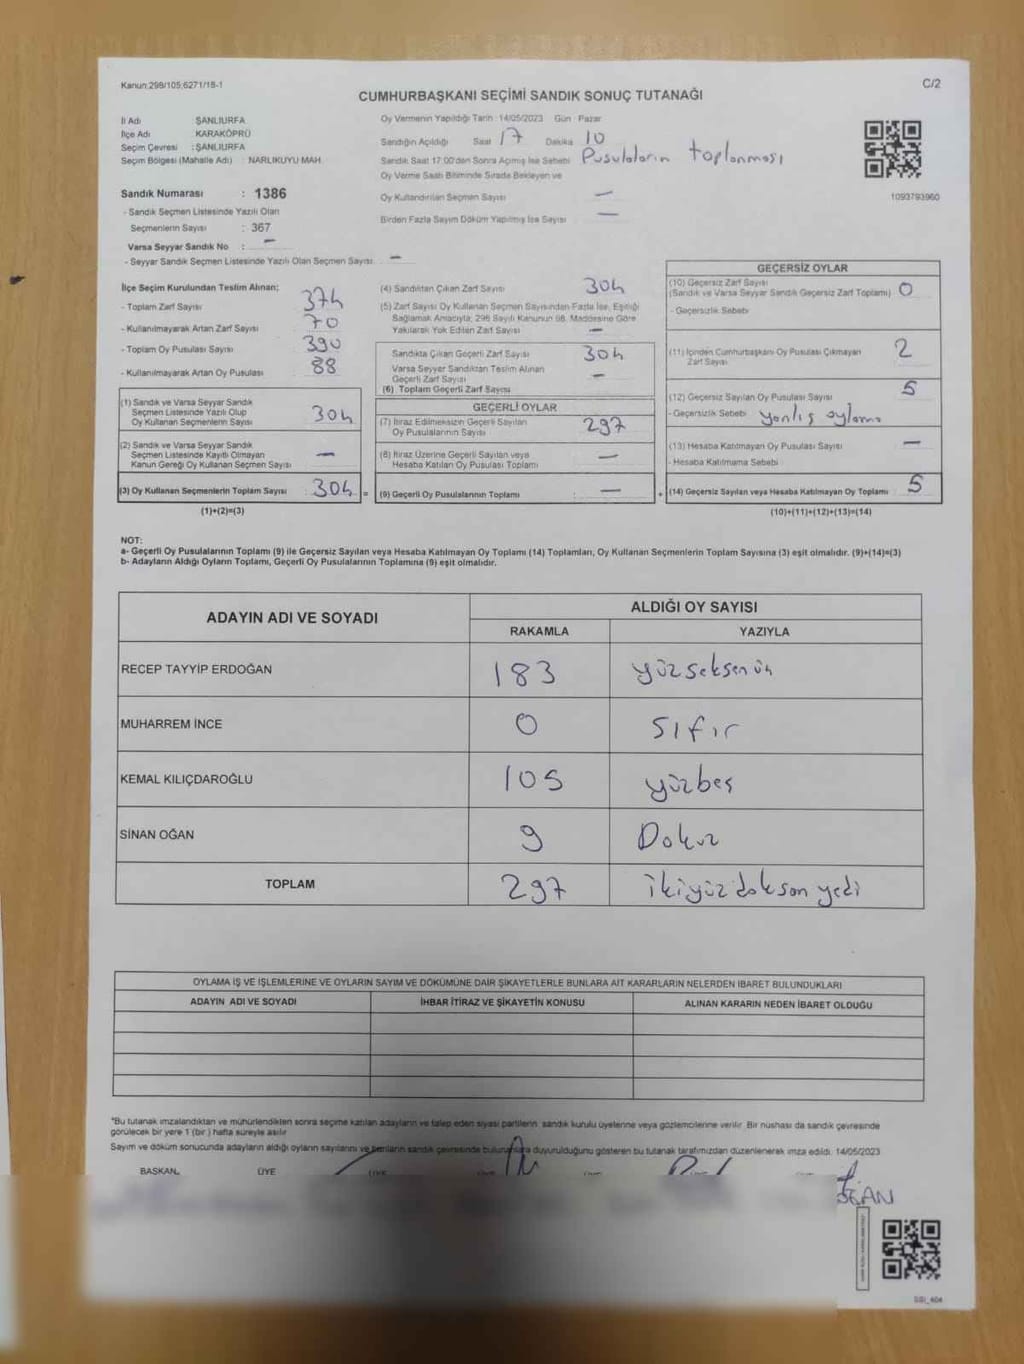 Kanun:298/105;6271/18-1
C/2
CUMHURBAŞKANI SEÇİMİ SANDIK SONUÇ TUTANAĞI
İl Adı ŞANLIURFA
İlçe Adı KARAKÖPRÜ
Seçim Çevresi : ŞANLIURFA
Seçim Bölgesi (Mahalle Adı) : NARLIKUYU MAH.
Oy Vermenin Yapıldığı Tarih : 14/05/2023 Gün : Pazar
Sandığın Açıldığı Saat 17 Dakika 10
Sandık Saat 17:00'den Sonra Açılmış İse Sebebi Pusulaların toplanması
Oy Verme Saati Bitiminde Sırada Bekleyen ve
Oy Kullandırılan Seçmen Sayısı —
Birden Fazla Sayım Döküm Yapılmış İse Sayısı —
1093793960
Sandık Numarası : 1386
- Sandık Seçmen Listesinde Yazılı Olan
Seçmenlerin Sayısı : 367
Varsa Seyyar Sandık No : —
- Seyyar Sandık Seçmen Listesinde Yazılı Olan Seçmen Sayısı: —
İlçe Seçim Kurulundan Teslim Alınan;
- Toplam Zarf Sayısı 374
- Kullanılmayarak Artan Zarf Sayısı 70
- Toplam Oy Pusulası Sayısı 390
- Kullanılmayarak Artan Oy Pusulası 88
(1) Sandık ve Varsa Seyyar Sandık
Seçmen Listesinde Yazılı Olup
Oy Kullanan Seçmenlerin Sayısı 304
(2) Sandık ve Varsa Seyyar Sandık
Seçmen Listesinde Kayıtlı Olmayan
Kanun Gereği Oy Kullanan Seçmen Sayısı —
(3) Oy Kullanan Seçmenlerin Toplam Sayısı 304 =
(1)+(2)=(3)
(4) Sandıktan Çıkan Zarf Sayısı 304
(5) Zarf Sayısı Oy Kullanan Seçmen Sayısından Fazla İse, Eşitliği
Sağlamak Amacıyla, 298 Sayılı Kanunun 98. Maddesine Göre
Yakılarak Yok Edilen Zarf Sayısı —
Sandıkta Çıkan Geçerli Zarf Sayısı 304
Varsa Seyyar Sandıktan Teslim Alınan
Geçerli Zarf Sayısı —
(6) Toplam Geçerli Zarf Sayısı
GEÇERLİ OYLAR
(7) İtiraz Edilmeksizin Geçerli Sayılan
Oy Pusulalarının Sayısı 297
(8) İtiraz Üzerine Geçerli Sayılan veya
Hesaba Katılan Oy Pusulası Toplamı —
(9) Geçerli Oy Pusulalarının Toplamı : — +
GEÇERSİZ OYLAR
(10) Geçersiz Zarf Sayısı
(Sandık ve Varsa Seyyar Sandık Geçersiz Zarf Toplamı) 0
- Geçersizlik Sebebi
(11) İçinden Cumhurbaşkanı Oy Pusulası Çıkmayan
Zarf Sayısı 2
(12) Geçersiz Sayılan Oy Pusulası Sayısı 5
- Geçersizlik Sebebi yanlış oylama
(13) Hesaba Katılmayan Oy Pusulası Sayısı —
- Hesaba Katılmama Sebebi
(14) Geçersiz Sayılan veya Hesaba Katılmayan Oy Toplamı 5
(10)+(11)+(12)+(13)=(14)
NOT:
a- Geçerli Oy Pusulalarının Toplamı (9) ile Geçersiz Sayılan veya Hesaba Katılmayan Oy Toplamı (14) Toplamları, Oy Kullanan Seçmenlerin Toplam Sayısına (3) eşit olmalıdır. (9)+(14)=(3)
b- Adayların Aldığı Oyların Toplamı, Geçerli Oy Pusulalarının Toplamına (9) eşit olmalıdır.
ADAYIN ADI VE SOYADI
ALDIĞI OY SAYISI
RAKAMLA YAZIYLA
RECEP TAYYİP ERDOĞAN 183 yüzseksenüç
MUHARREM İNCE 0 Sıfır
KEMAL KILIÇDAROĞLU 105 yüzbeş
SİNAN OĞAN 9 Dokuz
TOPLAM 297 ikiyüzdoksan yedi
OYLAMA İŞ VE İŞLEMLERİNE VE OYLARIN SAYIM VE DÖKÜMÜNE DAİR ŞİKAYETLERLE BUNLARA AİT KARARLARIN NELERDEN İBARET BULUNDUKLARI
ADAYIN ADI VE SOYADI İHBAR İTİRAZ VE ŞİKAYETİN KONUSU ALINAN KARARIN NEDEN İBARET OLDUĞU
*Bu tutanak imzalandıktan ve mühürlendikten sonra seçime katılan adayların ve talep eden siyasi partilerin sandık kurulu üyelerine veya gözlemcilerine verilir. Bir nüshası da sandık çevresinde
görülecek bir yere 1 (bir ) hafta süreyle asılır.
Sayım ve döküm sonucunda adayların aldığı oyların sayılarını ve bunların sandık çevresinde duyurulduğunu gösteren bu tutanak tarafımızdan düzenlenerek imza edildi. 14/05/2023
BAŞKAN ÜYE